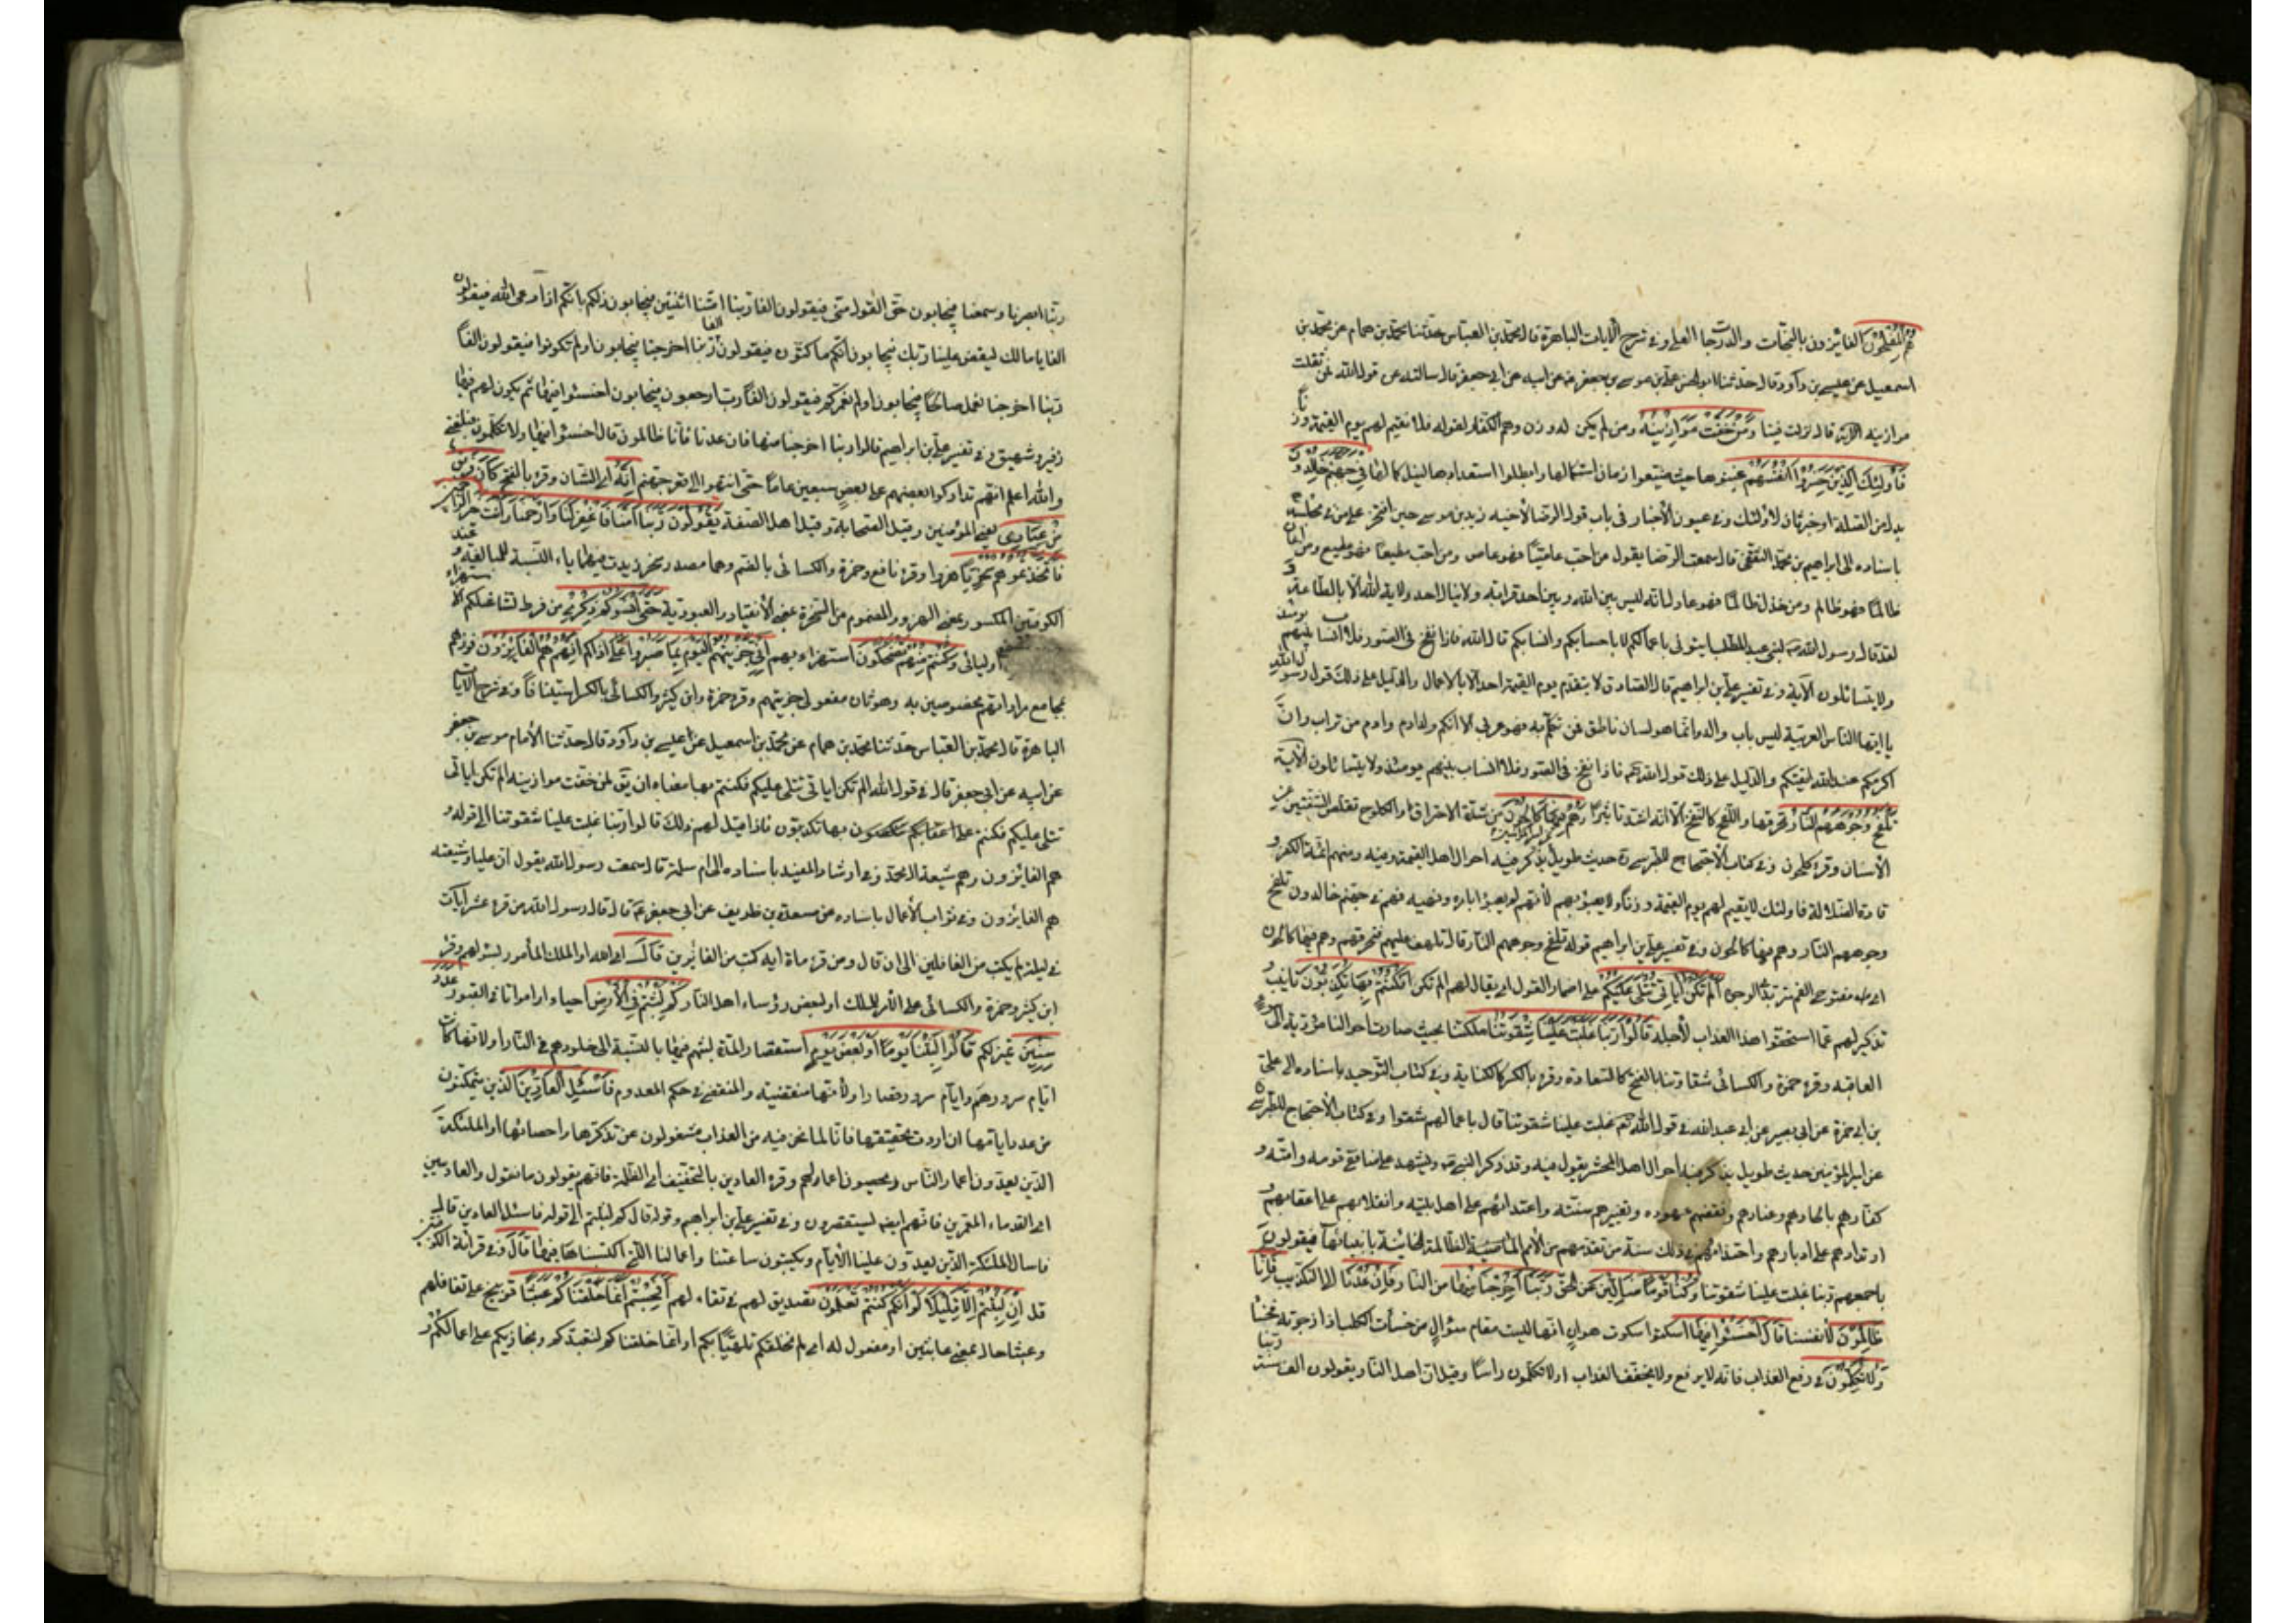 هُمُ الْمُفْلِحُونَ الفائزون بالنجات والدرجات العلى وفى شرح الايات الباهرة قال محمد بن العباس حدثنا محمد بن همام عن محمد بن
اسمعيل عن عيسى بن داود قال حدثنا ابو الحسن على بن موسى بن جعفر عن ابيه عن ابى جعفر قال سالته عن قول الله فمن ثقلت
موازينه الاية قال نزلت فينا وَمَنْ خَفَّتْ مَوَازِينُهُ ومن لم يكن له وزن وهم الكفار لقوله فلا نقيم لهم يوم القيمة وزنا
فَاُولٰئِكَ الَّذِينَ خَسِرُوا اَنْفُسَهُمْ غبنوها حيث ضيعوا زمان استكمالها وابطلوا استعدادها لنيل كمالها فِي جَهَنَّمَ خَالِدُونَ
بدل من الصلة او خبر ثان لاولئك وفى عيون الأخبار فى باب قول الرضا لأخيه زيد بن موسى حين افتخر على من فى مجلسه
باسناده الى ابراهيم بن محمد الثقفى قال سمعت الرضا يقول من احب عاصيًا فهو عاص ومن احب مطيعًا فهو مطيع ومن اعان
ظالمًا فهو ظالم ومن خذل ظالمًا فهو عادل انه ليس بين الله وبين احد قرابة ولا ينال احد ولاية الله الا بالطاعة و
لقد قال رسول الله لبنى عبد المطلب ايتونى باعمالكم لا باحسابكم وانسابكم قال الله فاذا نفخ فى الصور فلا انساب بينهم يومئذ
ولا يتسائلون الآية وفى تفسير على بن ابراهيم قال الصادق لا يتقدم يوم القيمة احد الا بالاعمال والدليل على ذلك قول رسول الله
يا ايها الناس العربية ليس باب والد وانما هو لسان ناطق فمن تكلم به فهو عربى الا انكم ولد ادم وادم من تراب وانّ
اكرمكم عند الله اتقيكم والدليل على ذلك قول الله فاذا نفخ فى الصور فلا انساب بينهم يومئذ ولا يتسائلون الآية
تَلْفَحُ وُجُوهَهُمُ النَّارُ تحرقها واللفح كالنفح الا انه اشد تاثيرًا وَهُمْ فِيهَا كَالِحُونَ من شدة الاحتراق والكلوح تقلص الشفتين عن
الأسنان وقرئ كلحون وفى كتاب الأحتجاج للطبرسى عن امير المؤمنين حديث طويل يذكر فيه احوال اهل القيمة وفيه ومنهم ائمة الكفر و
قادة الضلالة فاولئك لا يقيم لهم يوم القيمة وزنا ولا يعبؤ بهم لأنهم لم يعبؤا بامره ونهيه فهم فى جهنم خالدون تلفح
وجوههم النار وهم فيها كالحون وفى تفسير على بن ابراهيم قوله تلفح وجوههم النار قال تلهب عليهم فتحرقهم وهم فيها كالحون
اى مفتوحى الفم متربّدى الوجوه اَلَمْ تَكُنْ اٰيَاتِي تُتْلٰى عَلَيْكُمْ على اضمار القول اى يقال لهم الم تكن فَكُنْتُمْ بِهَا تُكَذِّبُونَ تانيب و
تذكير لهم بما استحقوا هذا العذاب لأجله قَالُوا رَبَّنَا غَلَبَتْ عَلَيْنَا شِقْوَتُنَا ملكتنا بحيث صارت احوالنا مؤدية الى سوء
العاقبة وقرئ حمزة والكسائى شقاوتنا بالفتح كالسعادة وقرئ بالكسر كالكتابة وفى كتاب التوحيد باسناده الى على
بن ابى حمزة عن ابى بصير عن ابى عبد الله فى قول الله غلبت علينا شقوتنا قال باعمالهم شقوا وفى كتاب الأحتجاج للطبرسى
عن امير المؤمنين حديث طويل يذكر فيه احوال اهل المحشر يقول فيه وقد ذكر النبى ويشهد على منافقى قومه وامته و
كفارهم بالحادهم وعنادهم ونقضهم عهوده وتغييرهم سنته واعتدائهم على اهل بيته وانقلابهم على اعقابهم و
ارتدادهم على ادبارهم واحتذائهم فى ذلك سنة من تقدمهم من الأمم الماضية الظالمة الخائنة بانبيائها فيقولون
باجمعهم ربنا غلبت علينا شقوتنا وَكُنَّا قَوْمًا ضَالِّينَ عن الحق رَبَّنَا اَخْرِجْنَا مِنْهَا من النار فَاِنْ عُدْنَا الى التكذيب فَاِنَّا
ظَالِمُونَ لأنفسنا قَالَ اخْسَئُوا فِيهَا اسكتوا سكوت هوان انها ليست مقام سؤال من خسأت الكلب اذا زجرته فخسأ
وَلَا تُكَلِّمُونِ فى رفع العذاب فانه لا يرفع ولا يخفف العذاب او لا تكلمون راسًا وقيل ان اهل النار يقولون الف سنة ربنا
ربنا ابصرنا وسمعنا فيجابون حق القول منى فيقولون الفا ربنا امتنا اثنتين فيجابون ذلكم بانكم اذا دعى الله فيقولون
الفا يا مالك ليقض علينا ربك فيجابون انكم ماكثون فيقولون الفا ربنا اخرجنا فيجابون اولم تكونوا فيقولون الفًا
ربنا اخرجنا نعمل صالحًا فيجابون اولم نعمركم فيقولون الفًا رب ارجعون فيجابون اخسئوا فيها ثم يكون لهم فيها
زفير وشهيق وفى تفسير على بن ابراهيم قالوا ربنا اخرجنا منها فان عدنا فانا ظالمون قال اخسئوا فيها ولا تكلمون فبلغنى
والله اعلم انهم تداركوا بعضهم على بعض سبعين عامًا حتى انتهوا الى قعر جهنم اِنَّهُ اى الشان وقرئ بالفتح كَانَ فَرِيقٌ
مِنْ عِبَادِي يعنى المؤمنين وقيل الصحابة وقيل اهل الصفة يَقُولُونَ رَبَّنَا اٰمَنَّا فَاغْفِرْ لَنَا وَارْحَمْنَا وَاَنْتَ خَيْرُ الرَّاحِمِينَ
فَاتَّخَذْتُمُوهُمْ سِخْرِيًّا هزوا وقرئ نافع وحمزة والكسائى بالضم وهما مصدر سخر زيدت فيهما ياء النسبة للمبالغة وعند
الكوفيين المكسور بمعنى الهزو والمضموم من السخرة بمعنى الأنقياد والعبودية حَتّٰى اَنْسَوْكُمْ ذِكْرِي من فرط تشاغلكم بالاستهزاء
اوليائى وَكُنْتُمْ مِنْهُمْ تَضْحَكُونَ استهزاء بهم اِنِّي جَزَيْتُهُمُ الْيَوْمَ بِمَا صَبَرُوا على اذاكم اَنَّهُمْ هُمُ الْفَائِزُونَ فوزهم
بمجامع مراداتهم مخصوصين به وهو ثان مفعولى جزيتهم وقرئ حمزة وابن كثير والكسائى بالكسر استينافًا وفى شرح الآيات
الباهرة قال محمد بن العباس حدثنا محمد بن همام عن محمد بن اسمعيل عن عيسى بن داود قال حدثنا الأمام موسى بن جعفر
عن ابيه عن ابى جعفر قال فى قول الله الم تكن اياتى تتلى عليكم فكنتم بها تكذبون لمن خفت موازينه الم تكن اياتى
تتلى عليكم فكنتم على اعقابكم تنكصون بها تكذبون فاذا قيل لهم ذلك قالوا ربنا غلبت علينا شقوتنا الى قوله و
هم الفايزون وهم شيعة ال محمد وفى ارشاد المفيد باسناده الى ام سلمة قالت سمعت رسول الله يقول ان عليا وشيعته
هم الفايزون وفى ثواب الأعمال باسناده عن مسعدة بن ظريف عن ابى جعفر قال قال رسول الله من قرء عشر ايات
فى ليلة لم يكتب من الغافلين الى ان قال ومن قرء مأة اية كتب من الفائزين قَالَ اى الله او الملك المأمور بسؤالهم وقرئ
ابن كثير وحمزة والكسائى على الأمر للملك او لبعض رؤساء اهل النار كَمْ لَبِثْتُمْ فِي الْاَرْضِ احياء او امواتا فى القبور عَدَدَ
سِنِينَ تمييز لكم قَالُوا لَبِثْنَا يَوْمًا اَوْ بَعْضَ يَوْمٍ استقصارا لمدة لبثهم فيها بالنسبة الى خلودهم فى النار او لانها كانت
ايام سرورهم وايام سرور قصار او لأنها منقضية والمنقضى فى حكم المعدوم فَاسْئَلِ الْعَادِّينَ الذين يتمكنون
من عد ايامها ان اردت تحقيقها فانا لما نحن فيه من العذاب مشغولون عن تذكرها واحصائها او الملئكة
الذين يعدون اعمار الناس ويحصون اعمالهم وقرئ العادين بالتخفيف اى الظلمة فانهم يقولون ما نقول والعاديين
اى القدماء المعمرين فانهم ايضا يستقصرون وفى تفسير على بن ابراهيم وقوله قال كم لبثتم الى قوله فاسئل العادين قال
فاسال الملئكة الذين يعدون علينا الأيام ويكتبون ساعتنا واعمالنا التى اكتسبناها فيها قَالَ وفى قراءة الكوفيين
قل اِنْ لَبِثْتُمْ اِلَّا قَلِيلًا لَوْ اَنَّكُمْ كُنْتُمْ تَعْلَمُونَ تصديق لهم فى تقاء لهم اَفَحَسِبْتُمْ اَنَّمَا خَلَقْنَاكُمْ عَبَثًا توبيخ على تغافلهم
وعبثا حال بمعنى عابثين او مفعول له اى لم نخلقكم تلهيًا بكم وانما خلقناكم لنتعبدكم ونجازيكم على اعمالكم و